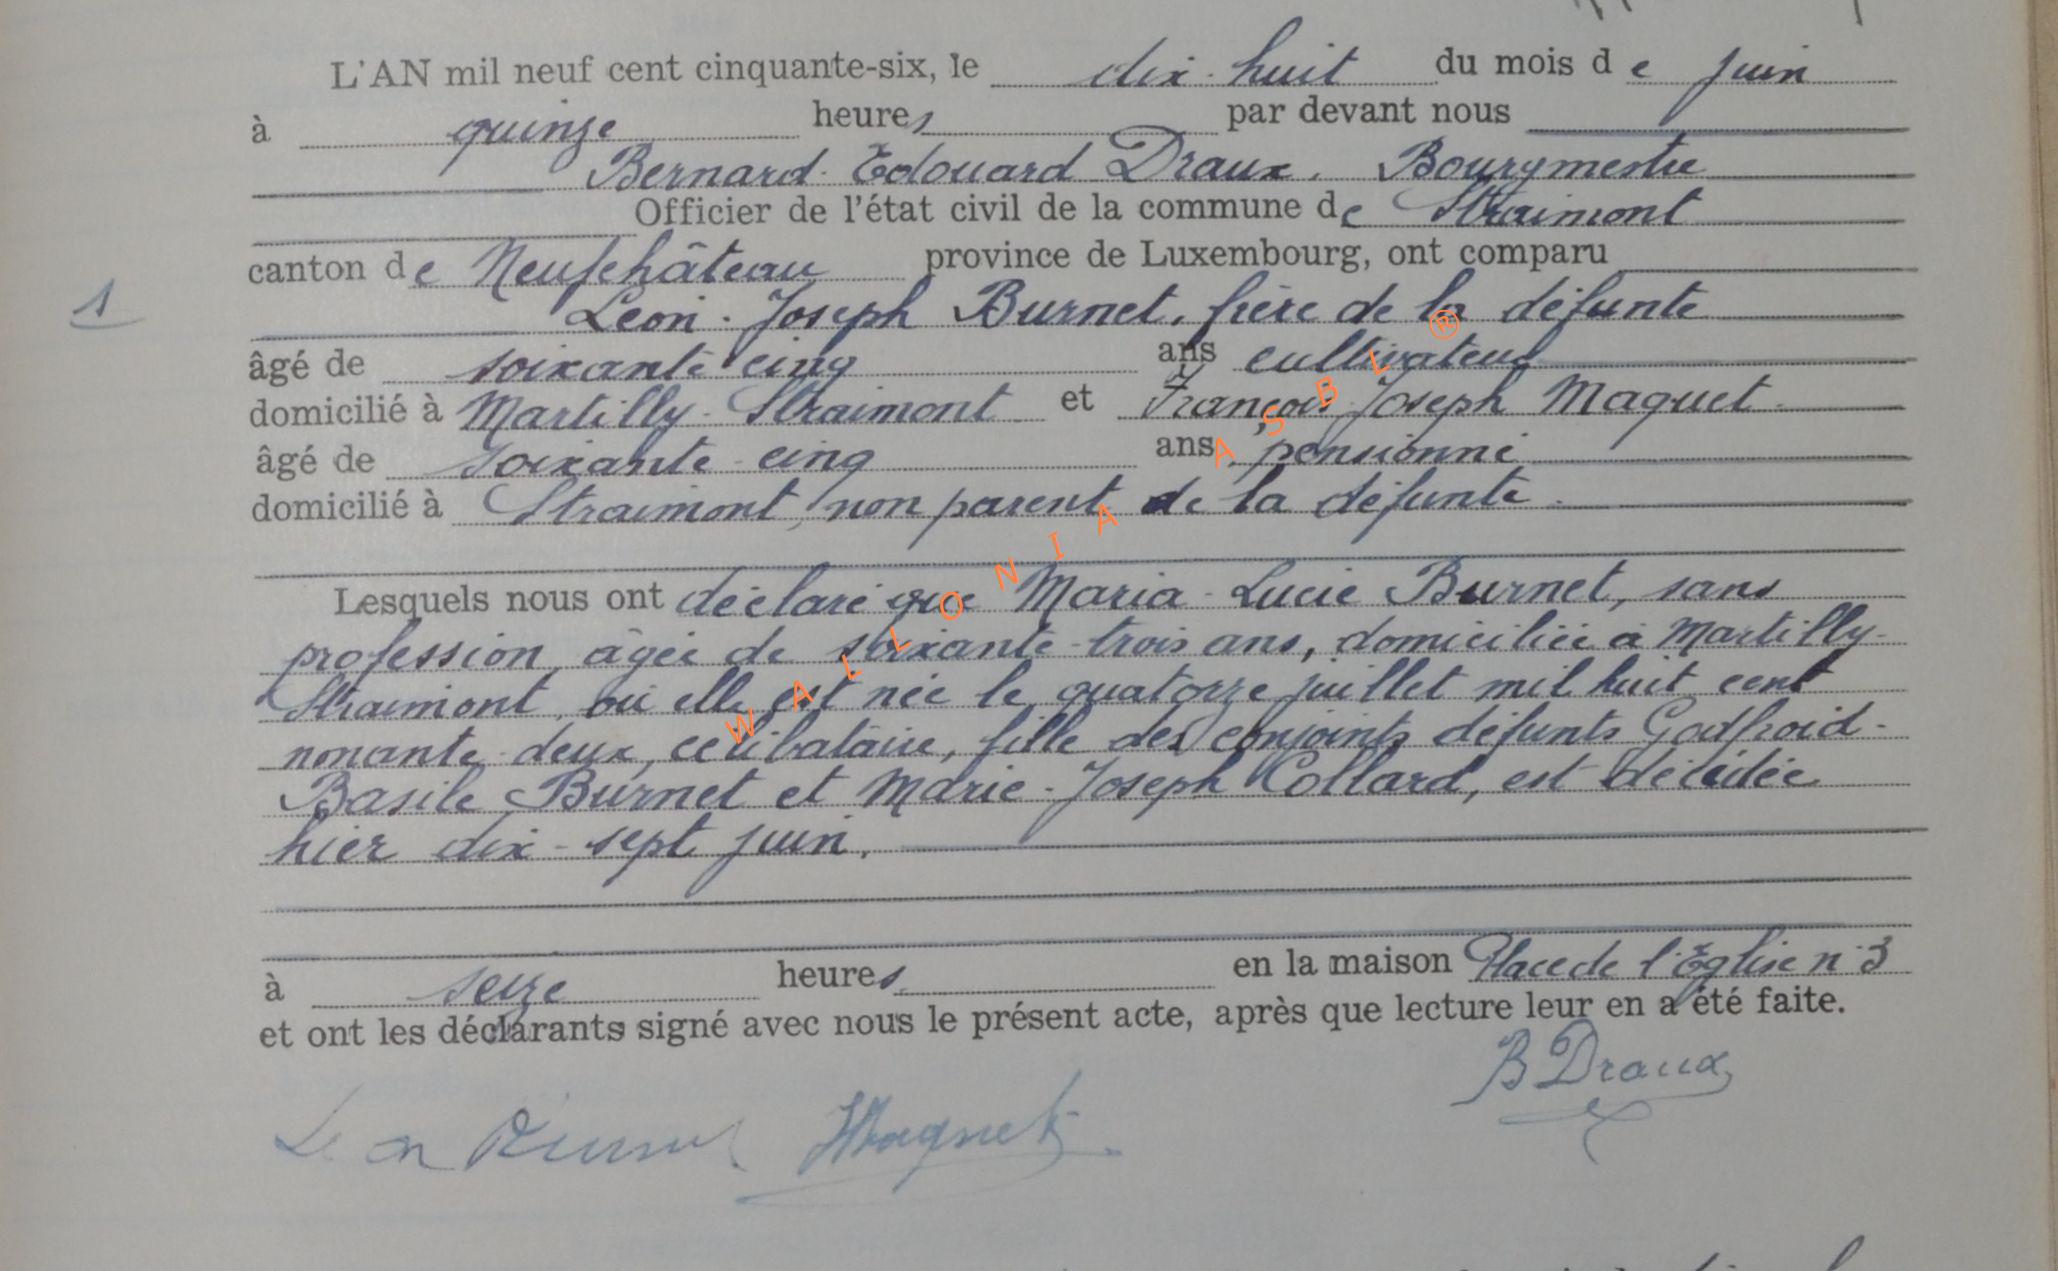 L'AN mil neuf cent cinquante-six, le dix-huit du mois de juin
à quinze heures par devant nous
Bernard-Edouard Draux, Bourgmestre
Officier de l'état civil de la commune de Straimont
canton de Neufchâteau province de Luxembourg, ont comparu
1
Léon-Joseph Burnet, frère de la défunte
âgé de soixante cinq ans cultivateur
domicilié à Martilly-Straimont et François-Joseph Maquet
âgé de soixante-cinq ans, pensionné
domicilié à Straimont, non parent de la défunte
Lesquels nous ont déclaré que Maria-Lucie Burnet, sans
profession, âgée de soixante-trois ans, domiciliée à Martilly-
Straimont, où elle est née le quatorze juillet mil huit cent
nonante-deux, célibataire, fille des conjoints défunts Godfroid-
Basile Burnet et Marie-Joseph Collard, est décédée
hier dix-sept juin,
à seize heures en la maison Place de l'Eglise n°3
et ont les déclarants signé avec nous le présent acte, après que lecture leur en a été faite.
B Draux
Leon Burnet Maquet
WALLONIA ASBL ®